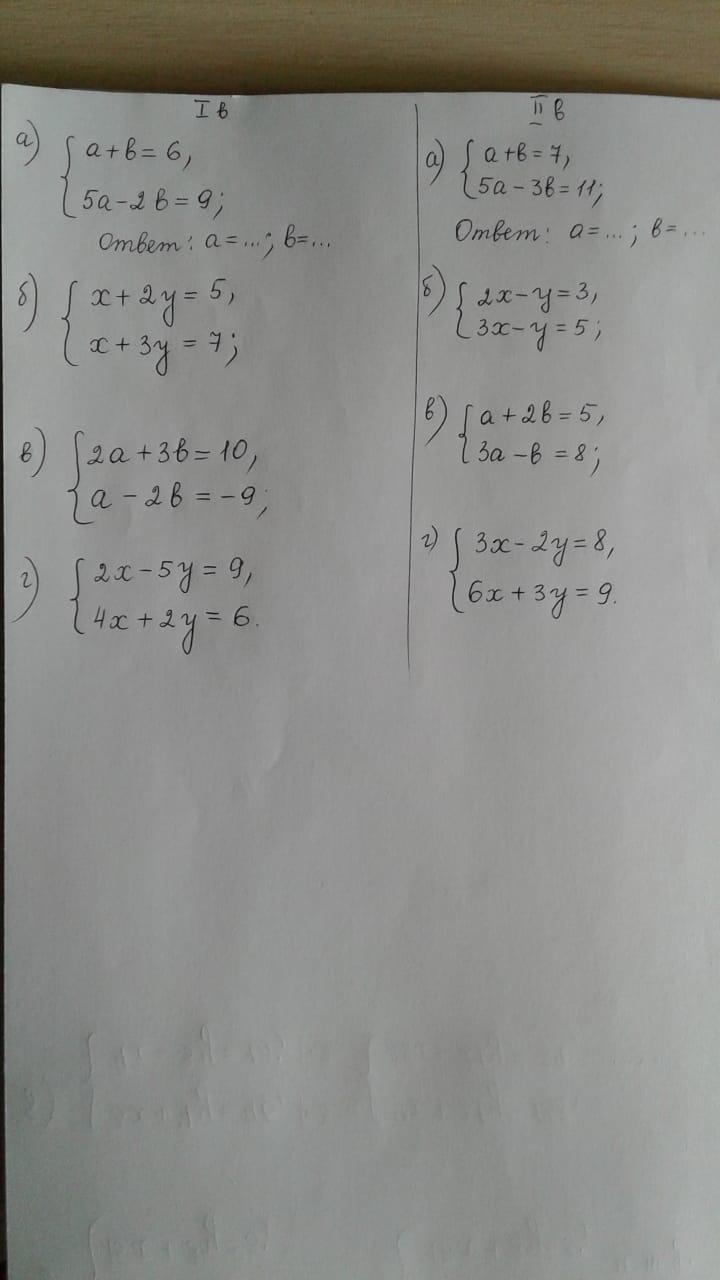 I в
а) { a + b = 6,
5a - 2b = 9;
Ответ: a = ...; b = ...
б) { x + 2y = 5,
x + 3y = 7;
в) { 2a + 3b = 10,
a - 2b = -9;
г) { 2x - 5y = 9,
4x + 2y = 6.
II в
а) { a + b = 7,
5a - 3b = 11;
Ответ: a = ...; b = ...
б) { 2x - y = 3,
3x - y = 5;
в) { a + 2b = 5,
3a - b = 8;
г) { 3x - 2y = 8,
6x + 3y = 9.